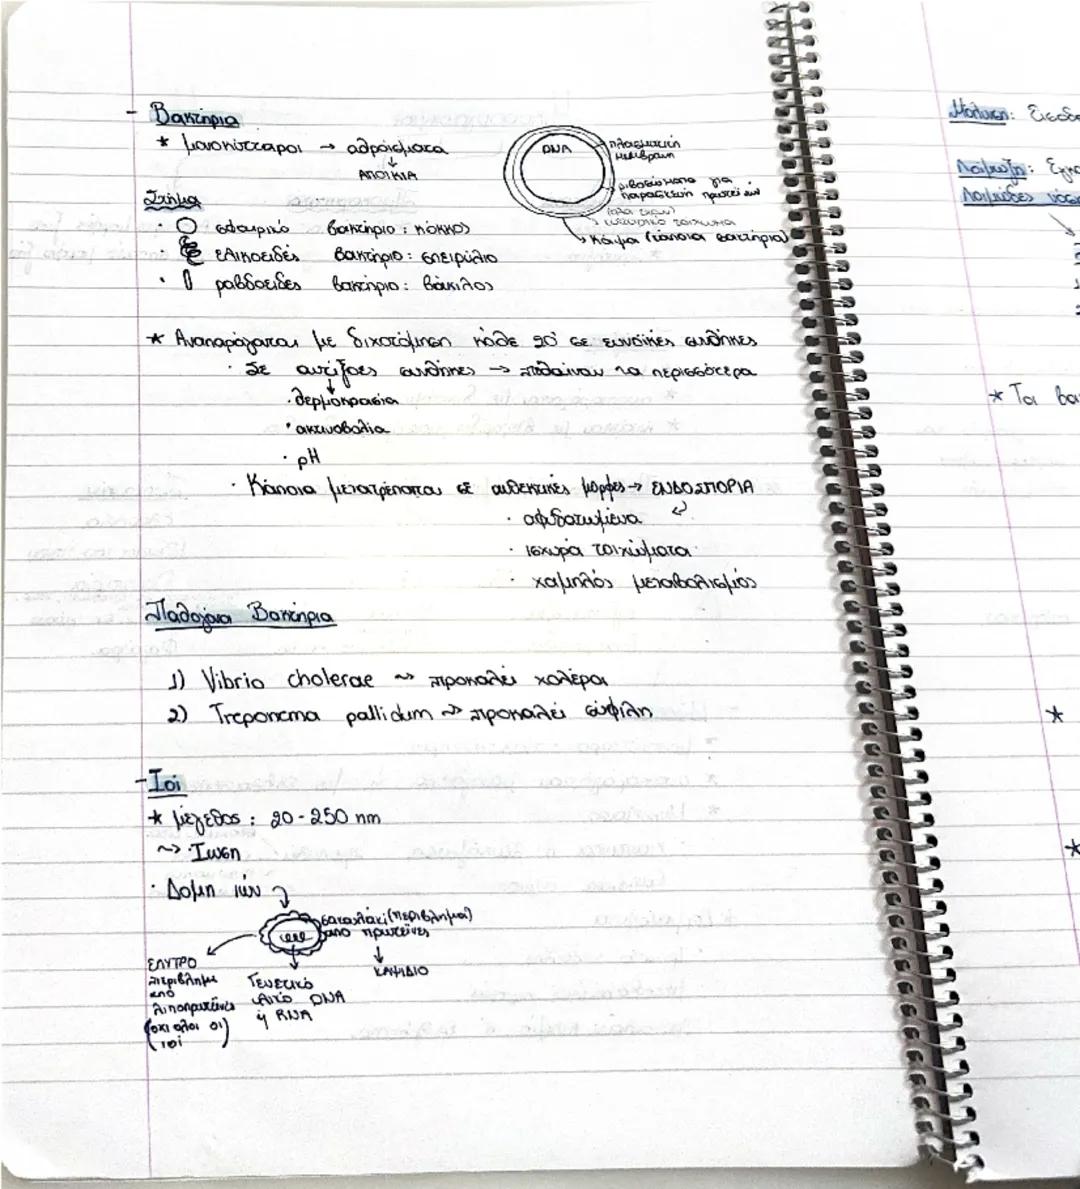 - Βακτήρια
* μονοκύτταροι → αθροίσματα
↓
ΑΠΟΙΚΙΑ
DNA
πλασματική
μεμβράνη
ριβοσώματα για
παρασκευή πρωτεϊνών
(όλα έχουν)
κυτταρικό τοίχωμα
κάψα (κάποια βακτήρια)
Σχήμα
· σφαιρικό βακτήριο : κόκκος
· ελικοειδές βακτήριο : σπειρύλιο
· ραβδοειδές βακτήριο : βάκιλος
* Αναπαράγεται με διχοτόμηση κάθε 20' σε ευνοϊκές συνθήκες
· Σε αντίξοες συνθήκες → πεθαίνουν τα περισσότερα
· θερμοκρασία
· ακτινοβολία
· pH
· Κάποια μετατρέπονται σε ανθεκτικές μορφές → ΕΝΔΟΣΠΟΡΙΑ
· αφυδατωμένα
· ισχυρά τοιχώματα
· χαμηλός μεταβολισμός
Παθογόνα Βακτήρια
1) Vibrio cholerae ~> προκαλεί χολέρα
2) Treponema pallidum ~> προκαλεί σύφιλη
- Ιοί
* μέγεθος : 20 - 250 nm
~> Ίωση
· Δομή ιών
σακουλάκι (περίβλημα)
από πρωτεΐνες
↓
ΚΑΨΙΔΙΟ
ΕΛΥΤΡΟ
περίβλημα
από
λιποπρωτεΐνες
(όχι όλοι οι
ιοί)
Γενετικό
υλικό DNA
ή RNA
Μόλυνση:
Λοίμωξη:
Λοιμώδες
* Τα
*
*